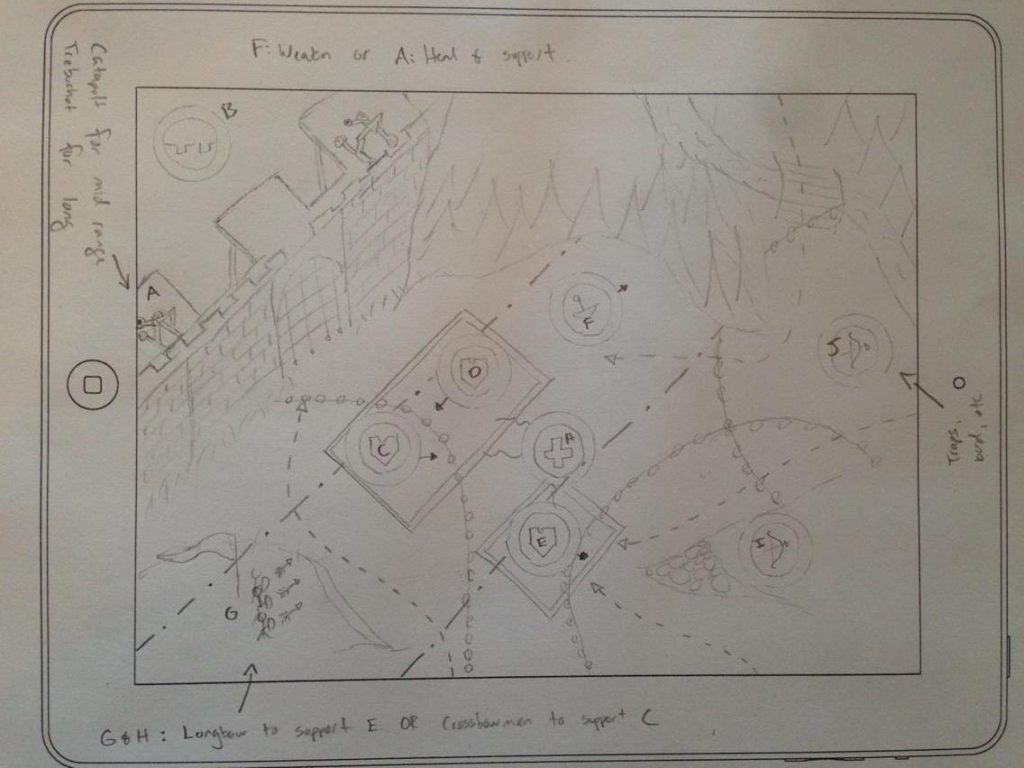 F: Weaken or A: Heal & support.
Catapult for mid range
Trebuchet for long
B
A
F
D
C
A
E
J
H
G
Traps,
boost, etc
G&H: Longbow to support E OR Crossbowmen to support C